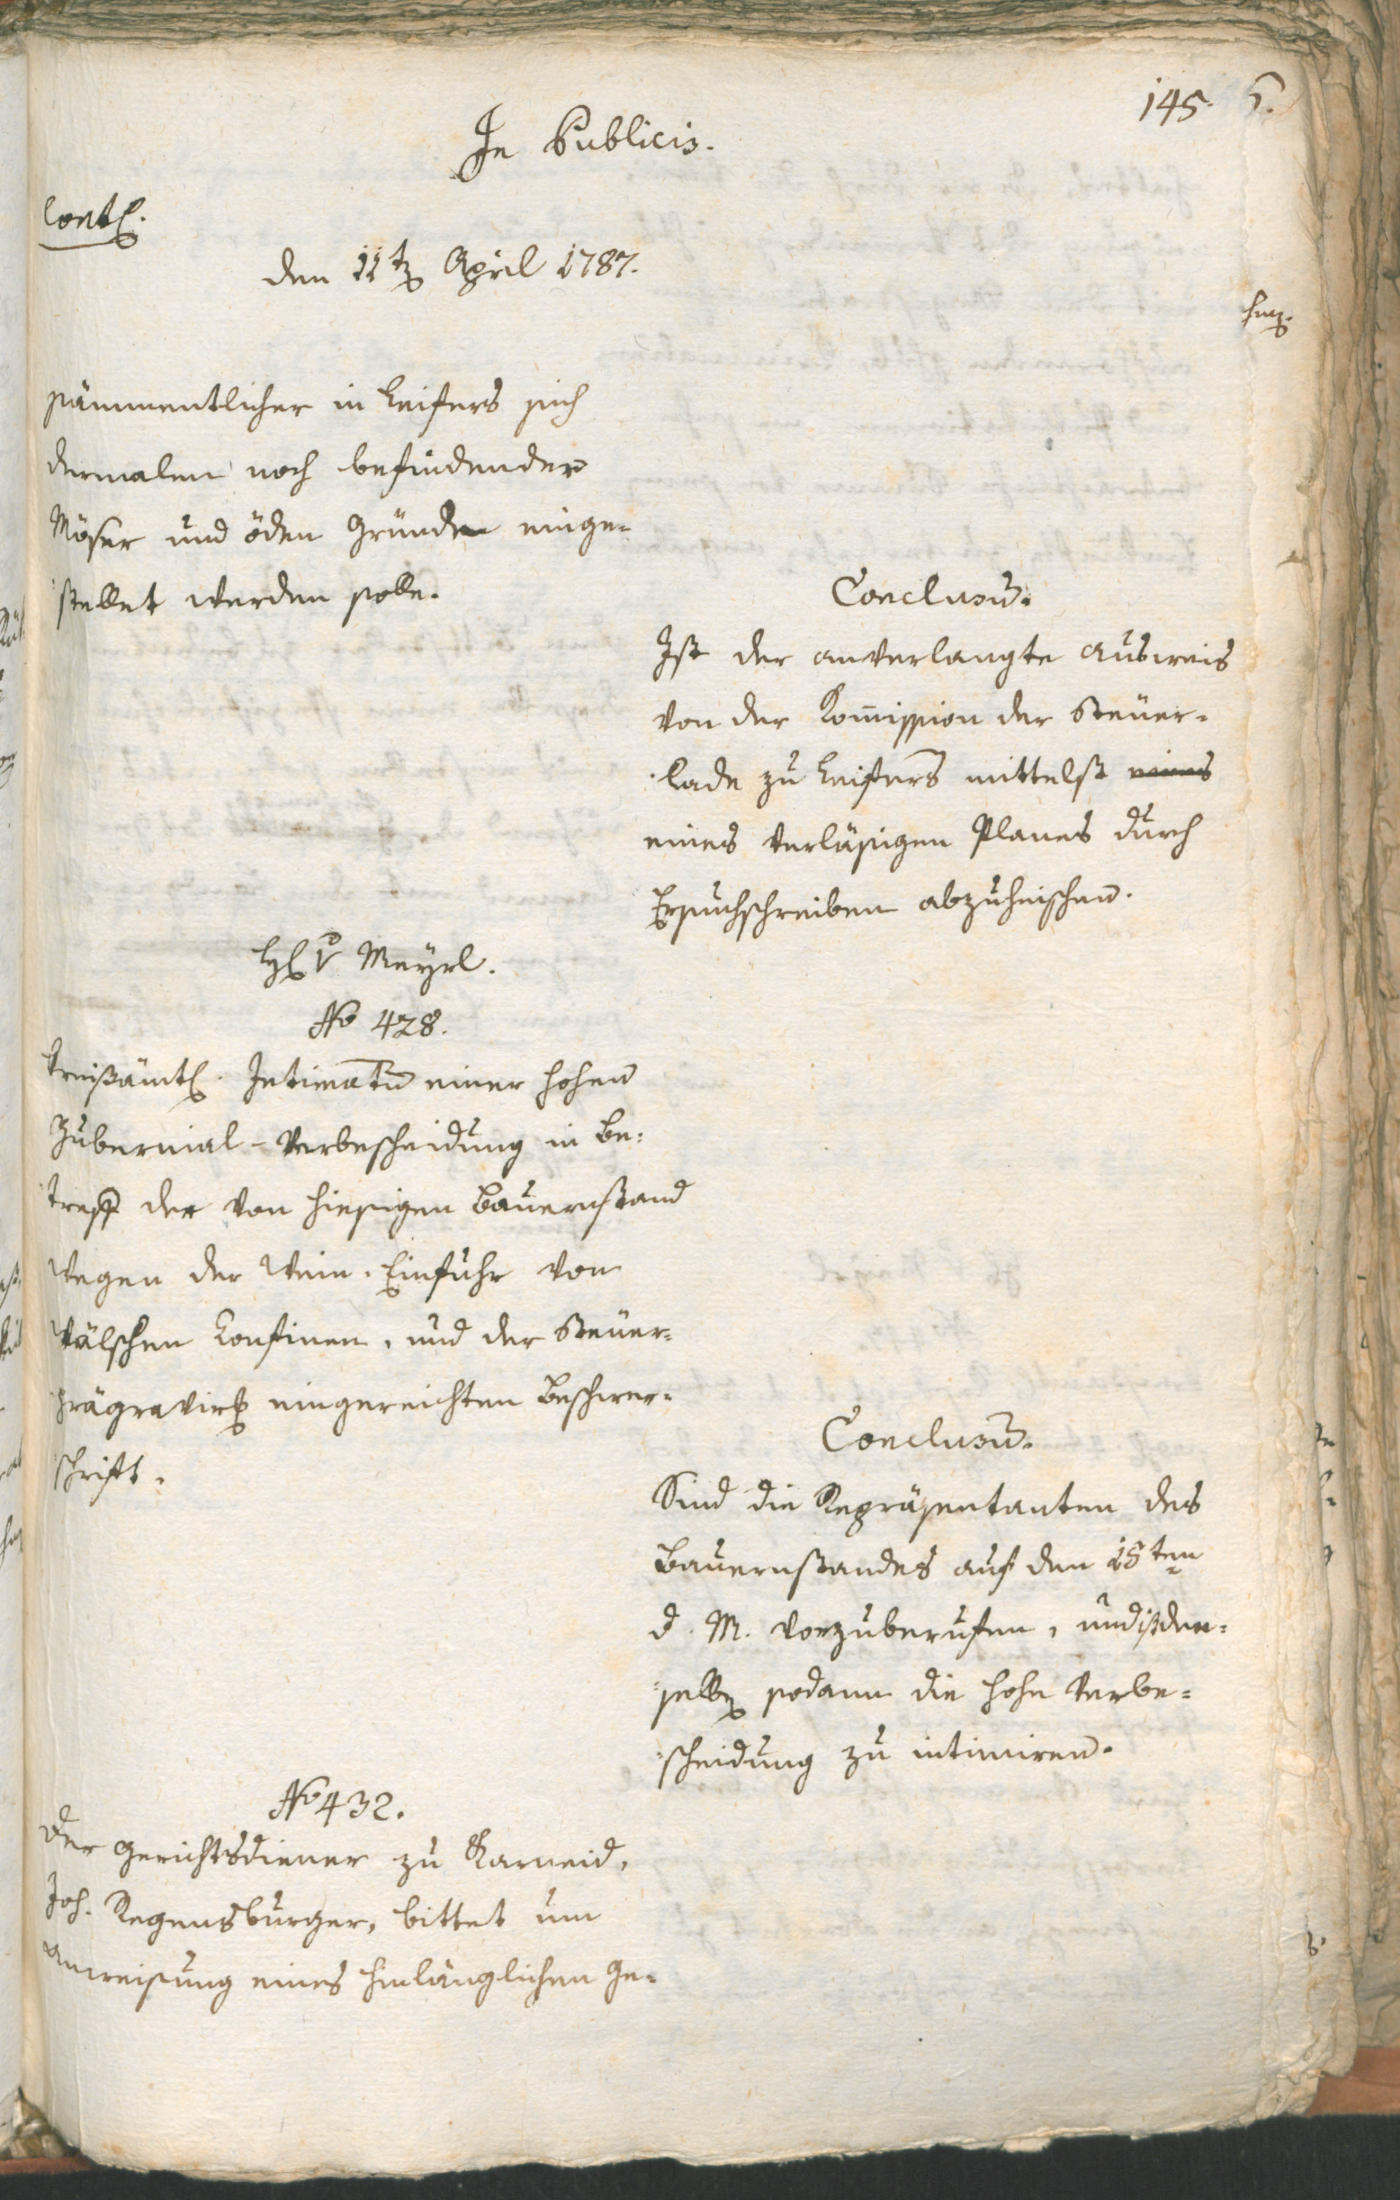 145.
In Publicis.
Cont.
den 11t April 1787.
sämmentlicher in Leifers sich
dermalen noch befindender
Möser und öden Gründen einge-
stellet werden solle.
Conclusū.
Ist der anverlangte Ausweis
von der Kom̄ission der Steuer-
lade zu Leifers mittelst eines
eines verläsigen Planes durch
Ersuchschreiben abzuheischen.
H v Meyrl.
No 428.
Kreißämtl. Intimatū einer hohen
Gubernial-Verbescheidung in Be-
treff der von hiesigen Bauernstand
wegen der Wein-Einfuhr von
Wälschen Konfinen, und der Steuer-
prägravir eingereichten Beschwer-
schrift.
Conclusū.
Sind die Repräsentanten des
Bauernstandes auf den 15ten
d. M. vorzuberufen, und ist den-
selb sodann die hohe Verbe-
scheidung zu intimiren.
No 432.
Der Gerichtsdiener zu Karneid,
Joh. Regensburger, bittet um
Anweisung eines hinlänglichen Ge-